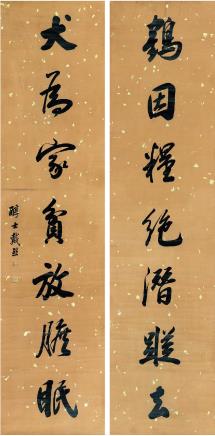 鶏因糧絶潛踪去
犬為家貧放膽眠
醇士戴熙